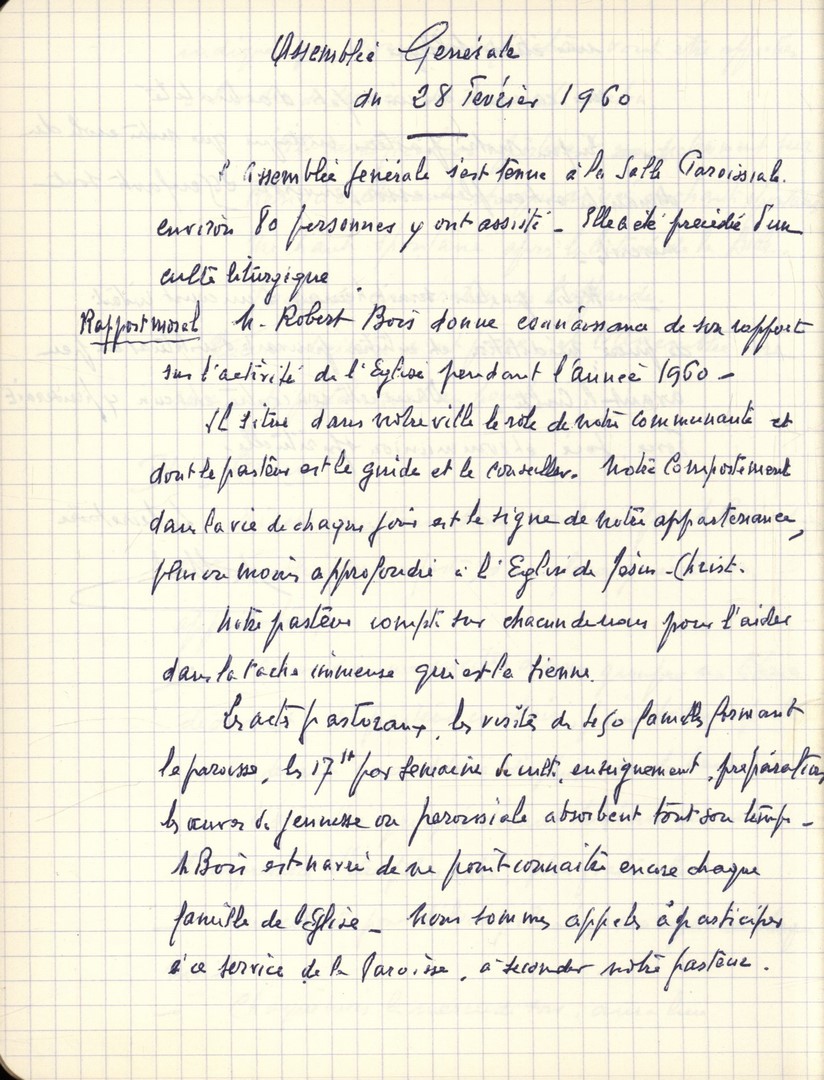 Assemblée Générale
du 28 Février 1960
L'Assemblée générale s'est tenue à la Salle Paroissiale.
environ 80 personnes y ont assisté - Elle a été précédée d'un
culte liturgique.
Rapport moral M. Robert Bois donne connaissance de son rapport
sur l'activité de l'Eglise pendant l'année 1960 -
Il situe dans notre ville le rôle de notre communauté et
dont le pasteur est le guide et le conseiller. Notre Comportement
dans la vie de chaque jour est le signe de notre appartenance,
plus ou moins approfondie à l'Eglise de Jésus-Christ.
Notre pasteur compte sur chacun de nous pour l'aider
dans la tache immense qui est la sienne.
Les actes pastoraux, les visites de familles formant
la paroisse, les 17 par semaine de culte, enseignement, préparation,
les œuvres de jeunesse ou paroissiale absorbent tout son temps -
M Bois est navré de ne point connaitre encore chaque
famille de l'Eglise - Nous sommes appelés à participer
à ce service de la Paroisse, à seconder notre pasteur.